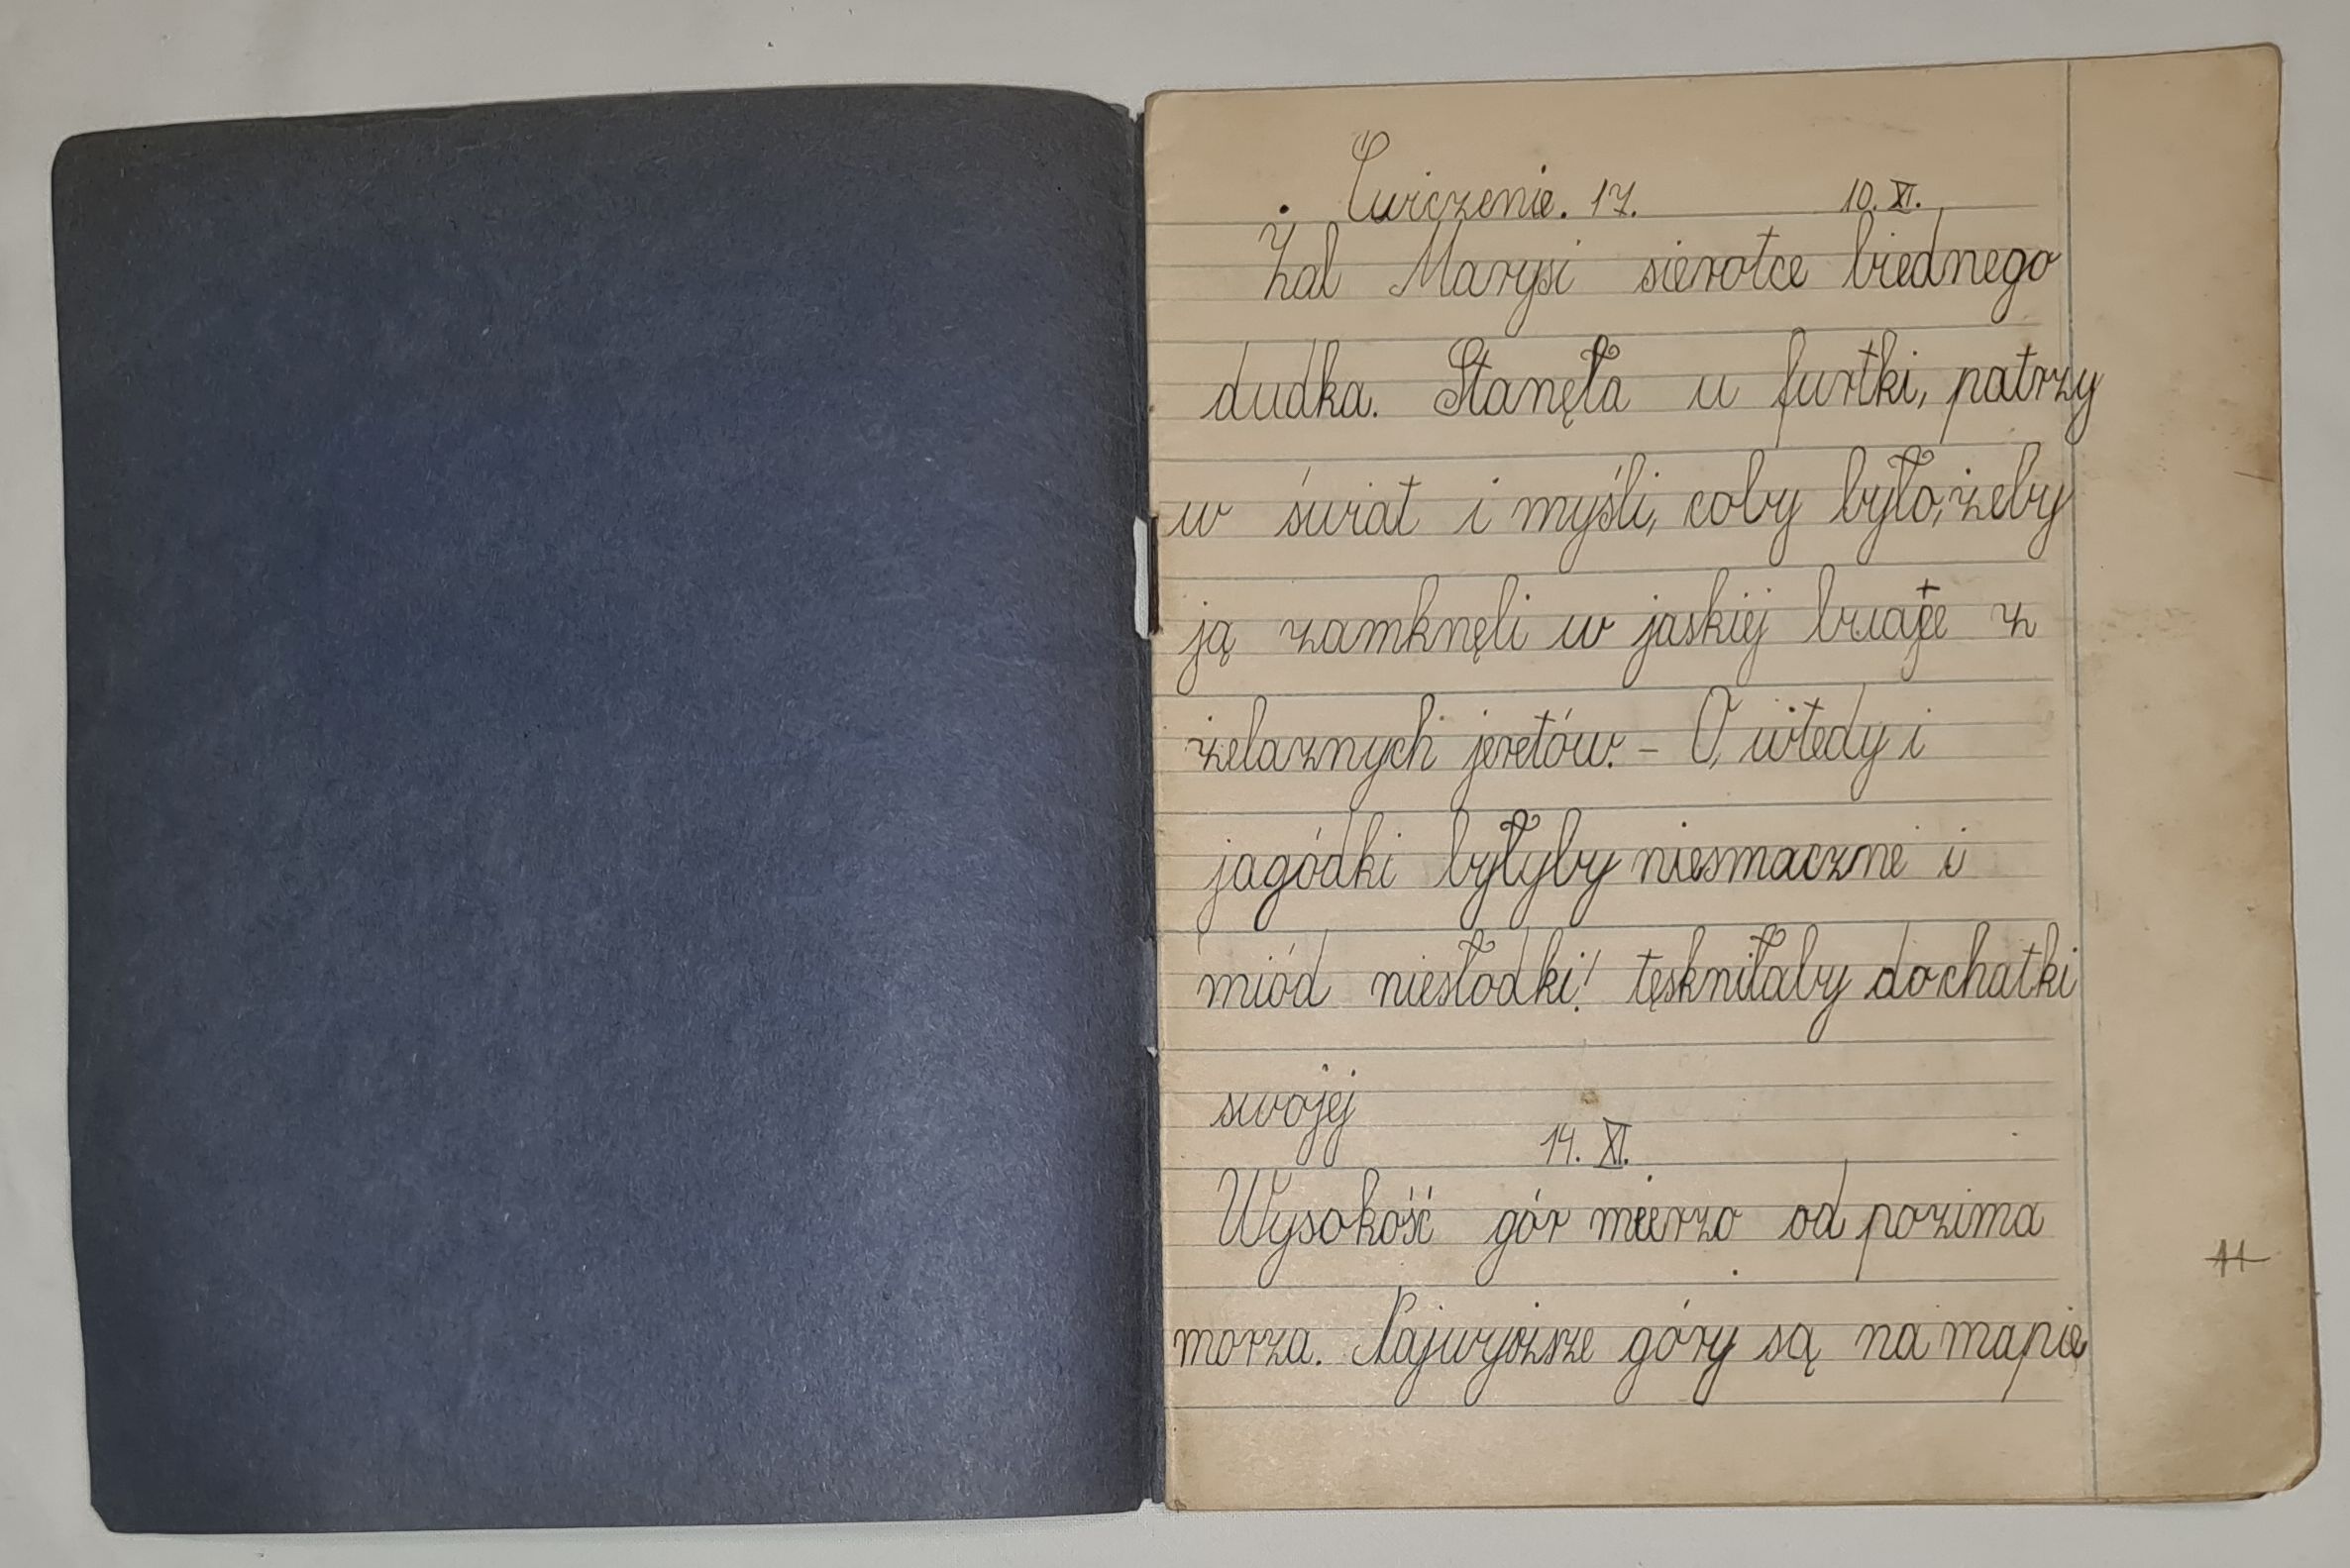 Ćwiczenie. 17. 10. XI.
Żal Marysi sierotce biednego
dudka. Stanęła u furtki, patrzy
w świat i myśli, coby było, żeby
ją zamknęli w jaskiej
żelaznych jeretów. – O, wtedy i
jagódki byłyby niesmaczne i
miód niesłodki! tęskniłaby do chatki
swojej
14. XI.
Wysokość gór mierzo od pozima
morza. Najwyższe góry są na mapie
11